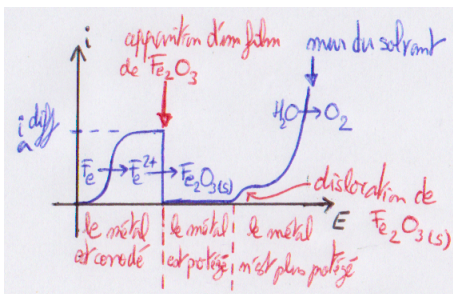 i
apparition d'un film
de Fe₂O₃
mur du solvant
i diff
a
H₂O → O₂
Fe → Fe²⁺ → Fe₂O₃(s)
dislocation de
Fe₂O₃(s)
E
le métal
est corrodé
le métal
est protégé
le métal
n'est plus protégé